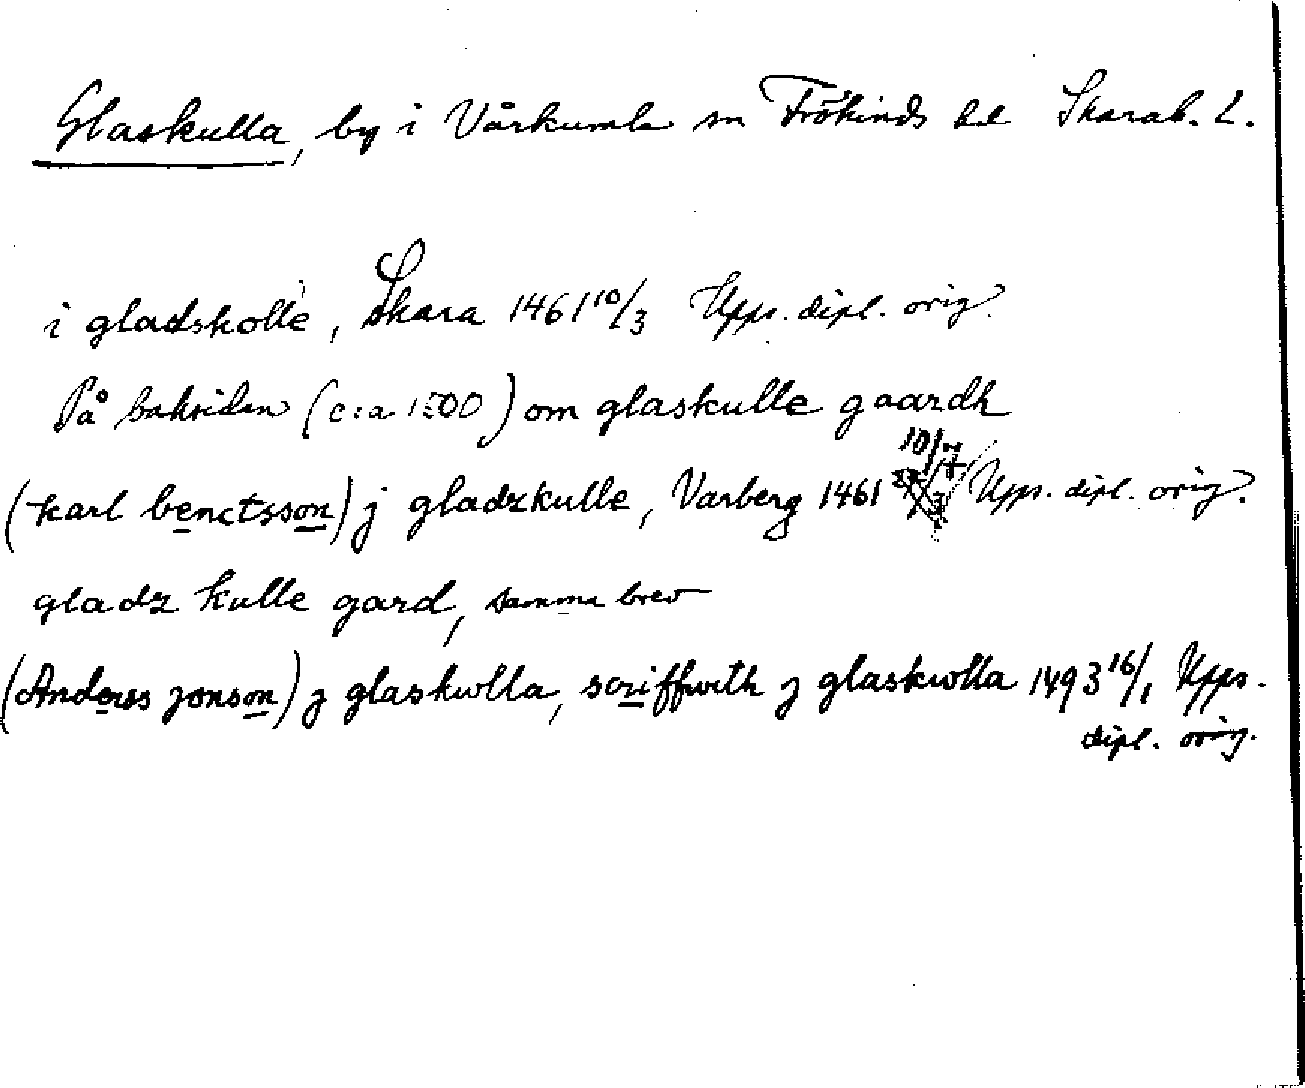 Glaskulla, by i Vårkumla sn Frökinds hd Skarab. L.
i gladskolle, Skara 1461 10/3 Upps. dipl. orig.
På baksidan (c:a 1500) om glaskulle gaardh
(karl benctsson) j gladzkulle, Varberg 1461 10/7 Upps. dipl. orig.
gladz kulle gard, samma brev
(Anders jonson) j glaskwlla, scriffwith j glaskwlla 1493 16/1 Upps.
dipl. orig.